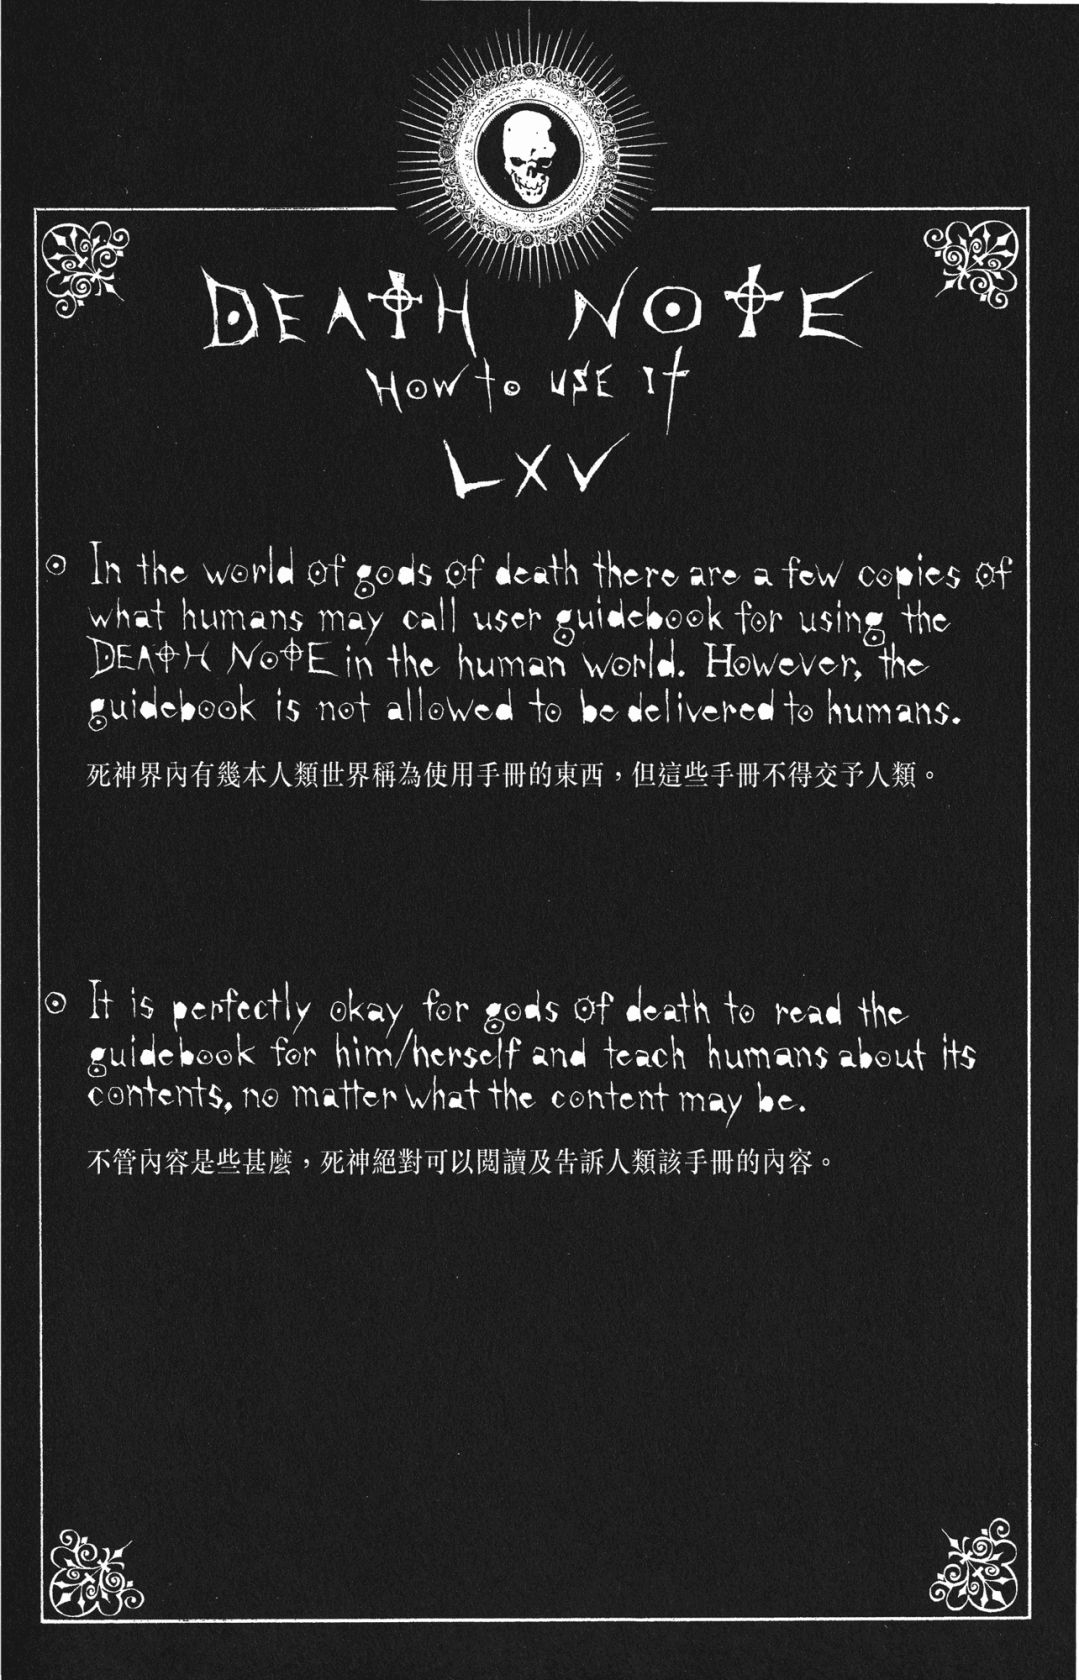 DEATH NOTE
How to use it
LXV
In the world of gods of death there are a few copies of
what humans may call user guidebook for using the
DEATH NOTE in the human world. However, the
guidebook is not allowed to be delivered to humans.
死神界內有幾本人類世界稱為使用手冊的東西，但這些手冊不得交予人類。
It is perfectly okay for gods of death to read the
guidebook for him/herself and teach humans about its
contents, no matter what the content may be.
不管內容是些甚麼，死神絕對可以閱讀及告訴人類該手冊的內容。